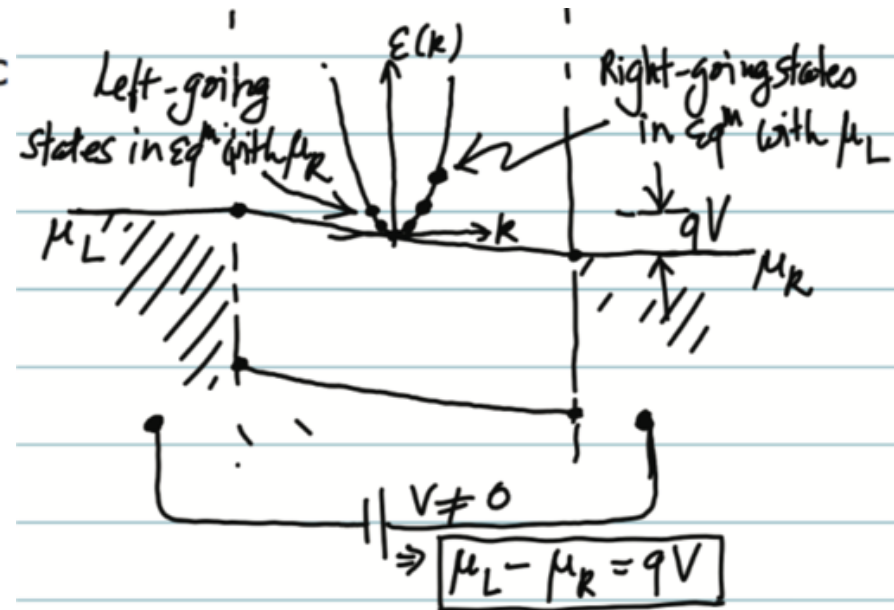 ε(k)
Left-going
states in eqᵐ with μ_R
Right-going states
in eqᵐ with μ_L
k
qV
μ_L
μ_R
V ≠ 0
⇒ μ_L - μ_R = qV